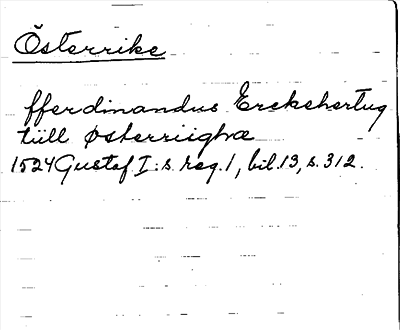 Österrike
fferdinandus Erckehertug
tiill østerriighæ
1524 Gustaf I:s reg. 1, bil. 13, s. 312.